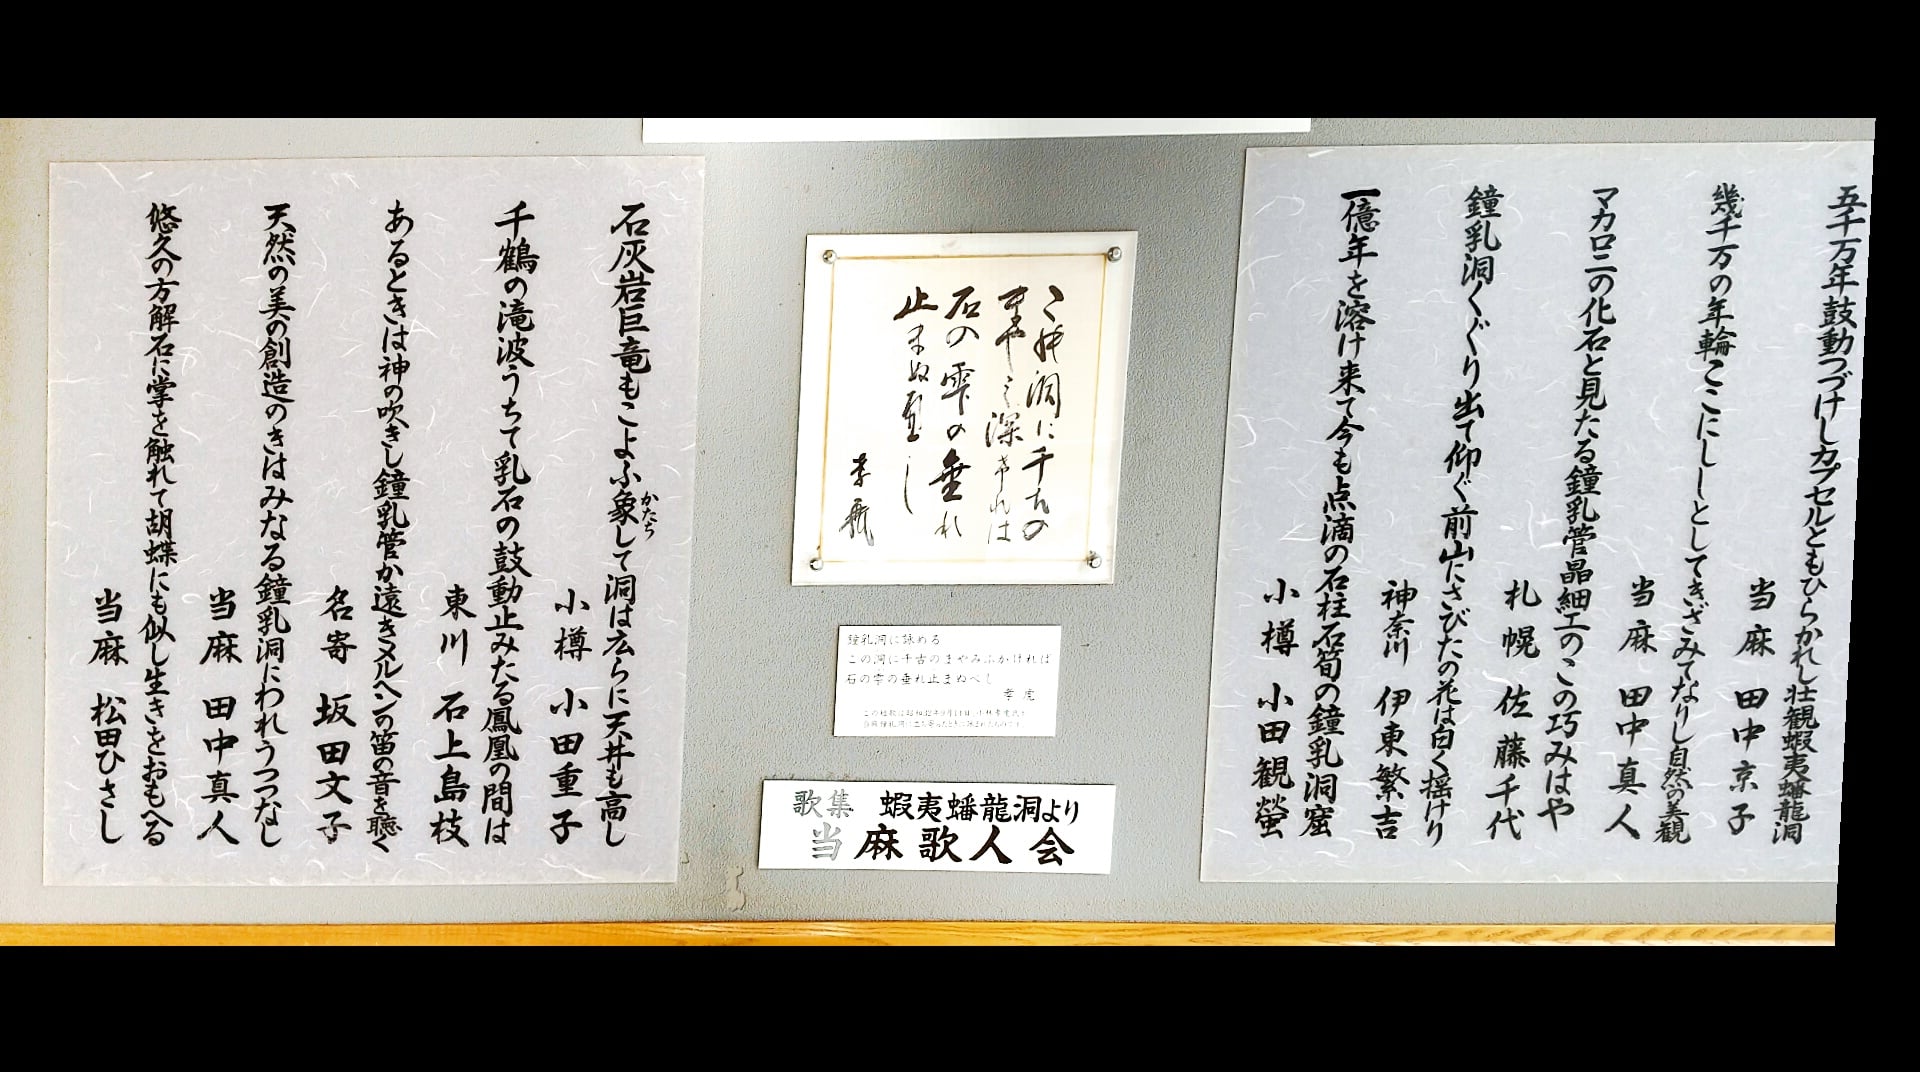 五千万年鼓動つづけしカプセルともひらかれし壮観蝦夷蟠龍洞
当麻 田中京子
幾千万の年輪ここにししとしてきざみてなりし自然の美観
当麻 田中真人
マカロニの化石と見たる鐘乳管晶細工のこの巧みはや
札幌 佐藤千代
鐘乳洞くぐり出て仰ぐ前山にさびたの花は白く揺けり
神奈川 伊東繁吉
一億年を溶け来て今も点滴の石柱石筍の鐘乳洞窟
小樽 小田観螢
この洞に千古の
まやみ深ければ
石の雫の垂れ
止まぬ
孝
鐘乳洞に詠める
この洞に千古のまやみふかければ
石の雫の垂れ止まぬべし
孝
歌集 蝦夷蟠龍洞より
当麻歌人会
石灰岩巨竜もこよふ象して洞は広らに天井も高し
かたち
小樽 小田重子
千鶴の滝波うちて乳石の鼓動止みたる鳳凰の間は
東川 石上島枝
あるときは神の吹きし鐘乳管か遠きメルヘンの笛の音を聴く
名寄 坂田文子
天然の美の創造のきはみなる鐘乳洞にわれうつつなし
当麻 田中真人
悠久の方解石に掌を触れて胡蝶にも似し生きをおもへる
当麻 松田ひさし